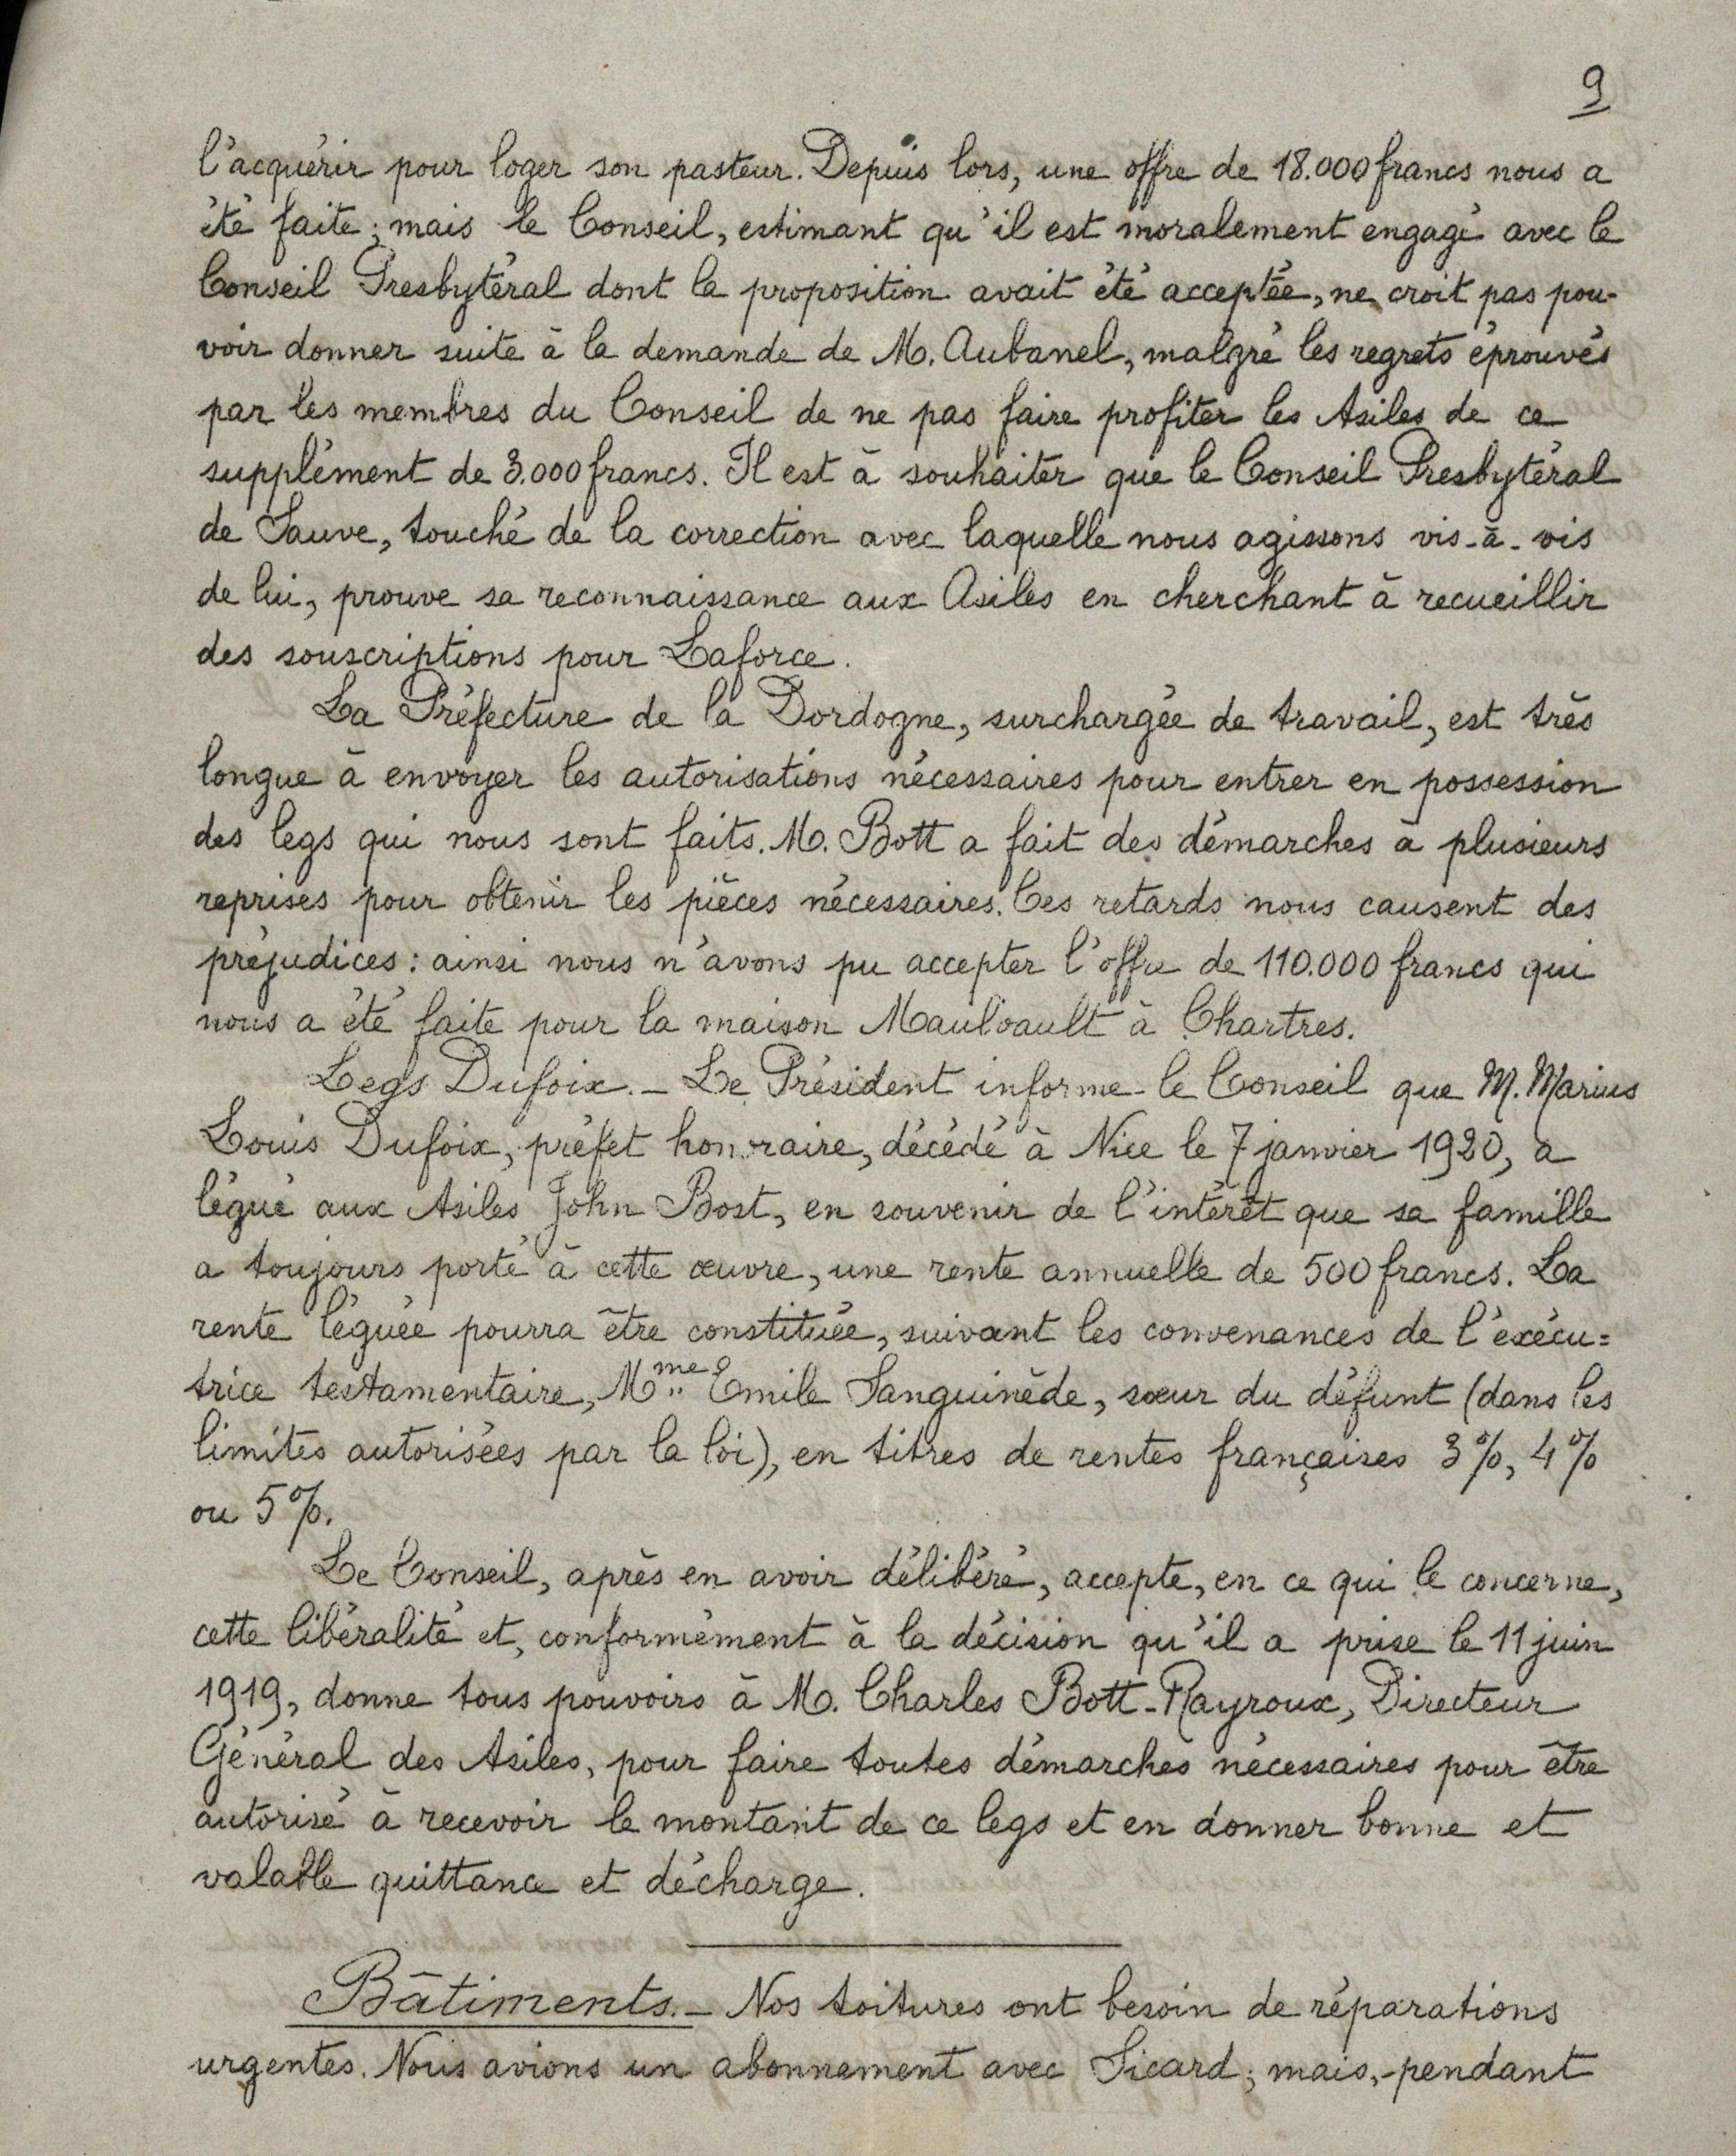 9
l'acquérir pour loger son pasteur. Depuis lors, une offre de 18.000 francs nous a
été faite; mais le Conseil, estimant qu'il est moralement engagé avec le
Conseil Presbytéral dont la proposition avait été acceptée, ne croit pas pou-
voir donner suite à la demande de M. Aubanel, malgré les regrets éprouvés
par les membres du Conseil de ne pas faire profiter les Asiles de ce
supplément de 3.000 francs. Il est à souhaiter que le Conseil Presbytéral
de Sauve, touché de la correction avec laquelle nous agissons vis-à-vis
de lui, prouve sa reconnaissance aux Asiles en cherchant à recueillir
des souscriptions pour Laforce.
La Préfecture de la Dordogne, surchargée de travail, est très
longue à envoyer les autorisations nécessaires pour entrer en possession
des legs qui nous sont faits. M. Bott a fait des démarches à plusieurs
reprises pour obtenir les pièces nécessaires. Ces retards nous causent des
préjudices: ainsi nous n'avons pu accepter l'offre de 110.000 francs qui
nous a été faite pour la maison Maulvault à Chartres.
Legs Dufoix. - Le Président informe le Conseil que M. Marius
Louis Dufoix, préfet honoraire, décédé à Nice le 7 janvier 1920, a
légué aux Asiles John Bost, en souvenir de l'intérêt que sa famille
a toujours porté à cette œuvre, une rente annuelle de 500 francs. La
rente léguée pourra être constituée, suivant les convenances de l'exécu=
trice testamentaire, Mme Emile Sanguinède, sœur du défunt (dans les
limites autorisées par la loi), en titres de rentes françaises 3%, 4%
ou 5%.
Le Conseil, après en avoir délibéré, accepte, en ce qui le concerne,
cette libéralité et, conformément à la décision qu'il a prise le 11 juin
1919, donne tous pouvoirs à M. Charles Bott-Rayroux, Directeur
Général des Asiles, pour faire toutes démarches nécessaires pour être
autorisé à recevoir le montant de ce legs et en donner bonne et
valable quittance et décharge.
Bâtiments. - Nos toitures ont besoin de réparations
urgentes. Nous avions un abonnement avec Sicard; mais, pendant